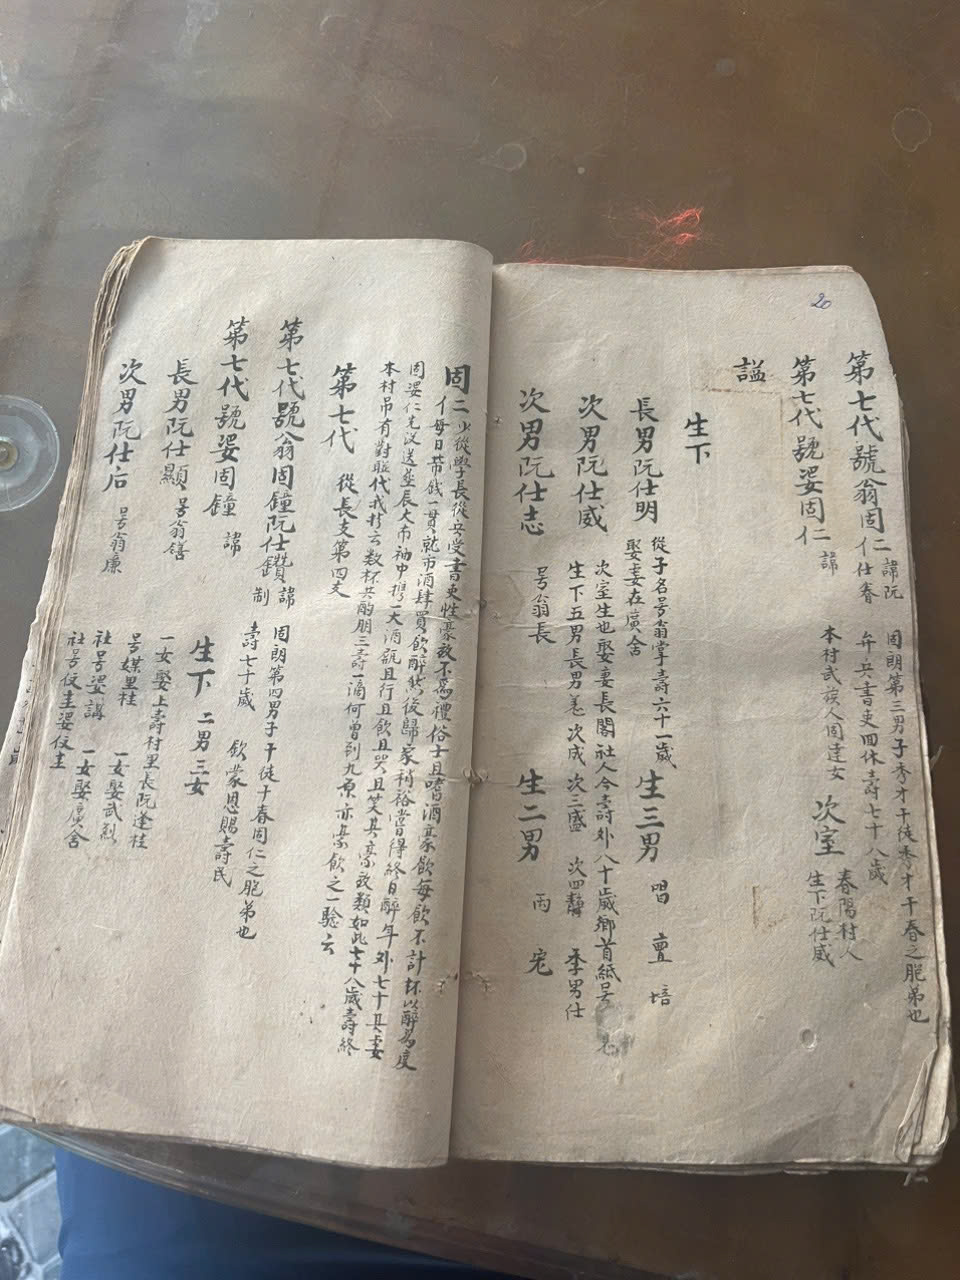 20
第七代號翁固仁諱阮仕春
固朗第三男子秀才干徒秀才干春之胞弟也
弁兵書吏回休壽七十八歲
第七代號婆固仁諱
本村武族人固達女
次室春陽村人
生下阮仕威
謚
生下
長男阮仕明
從子名号翁掌壽六十一歲
娶妻在廣舍
生三男 唱 亶 培
次男阮仕威
次室生也娶妻長閣社人今壽外八十歲鄉首紙号
生下五男長男 次成 次三盛 次四靜 季男仕
次男阮仕志 号翁長 生二男 丙 宠
固仁少從學長從兵受書吏性豪放不為禮俗士且嗜酒豪飲每飲不計杯以醉為度
每日帶錢一貫就市酒肆買飲醉然後歸家稍裕嘗得終日醉年外七十其妻
固婆仁先沒送葬辰大布袖中携一大酒瓶且行且飲且哭且笑其豪放類如此七十八歲壽終
本村吊有對聯代我於云数杯共酌朋三壽一滴何曾到九原亦豪飲之一驗云
第七代 從長支第四支
第七代號翁固鐘阮仕鑽諱制
固朗第四男子干徒干春固仁之胞弟也
壽七十歲 欽蒙恩賜壽民
第七代號婆固鐘 諱
生下 二男三女
長男阮仕顯 号翁饍
一女娶上壽村里長阮逢桂
号媒里桂 一女娶武烈
次男阮仕后 号翁廉
社号婆講 一女娶廣舍
社号伩圭婆伩圭